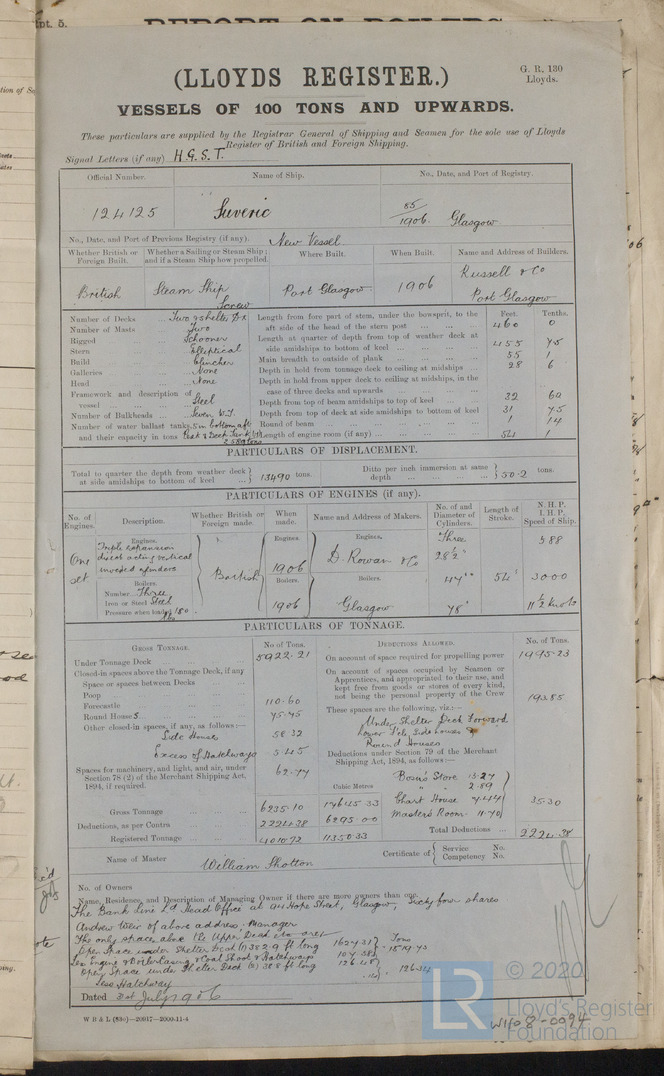 (LLOYDS REGISTER.)
G. R. 130
Lloyds.
VESSELS OF 100 TONS AND UPWARDS.
These particulars are supplied by the Registrar General of Shipping and Seamen for the sole use of Lloyds
Register of British and Foreign Shipping.
Signal Letters (if any) H.G.S.T.
Official Number. Name of Ship. No., Date, and Port of Registry.
124125 Suveric 85/1906 Glasgow
No., Date, and Port of Previous Registry (if any). New Vessel
Whether British or Foreign Built. Whether a Sailing or Steam Ship; and if a Steam Ship how propelled. Where Built. When Built. Name and Address of Builders.
British Steam Ship Screw Port Glasgow 1906 Russell & Co Port Glasgow
Number of Decks ... Two & shelter Dk
Number of Masts ... Two
Rigged ... Schooner
Stern ... Elliptical
Build ... Clincher
Galleries ... None
Head ... None
Framework and description of vessel ... Steel
Number of Bulkheads ... Seven W.T.
Number of water ballast tanks, 5 in bottom aft
and their capacity in tons Peak & Deck Tank
Feet. Tenths.
Length from fore part of stem, under the bowsprit, to the
aft side of the head of the stern post ... 460 0
Length at quarter of depth from top of weather deck at
side amidships to bottom of keel ... 455 75
Main breadth to outside of plank ... 55 1
Depth in hold from tonnage deck to ceiling at midships ... 28 6
Depth in hold from upper deck to ceiling at midships, in the
case of three decks and upwards
Depth from top of beam amidships to top of keel ... 32 69
Depth from top of deck at side amidships to bottom of keel 31 75
Round of beam ... 1 14
Length of engine room (if any) ... 54 1
PARTICULARS OF DISPLACEMENT.
Total to quarter the depth from weather deck at side amidships to bottom of keel 13490 tons.
Ditto per inch immersion at same depth 50.2 tons.
PARTICULARS OF ENGINES (if any).
No. of Engines. Description. Whether British or Foreign made. When made. Name and Address of Makers. No. of and Diameter of Cylinders. Length of Stroke. N. H. P. I. H. P. Speed of Ship.
Engines. Engines. Engines.
One set
Triple expansion
direct acting vertical
inverted cylinders
British 1906 D. Rowan & Co
Three 588
28½"
Boilers. Boilers. Boilers.
Number Three
Iron or Steel Steel
Pressure when loaded 180 lbs
1906 Glasgow
47" 54" 3000
78" 11½ Knots
PARTICULARS OF TONNAGE.
GROSS TONNAGE. No. of Tons.
Under Tonnage Deck ... 5922.21
Closed-in spaces above the Tonnage Deck, if any
Space or spaces between Decks
Poop
Forecastle ... 110.60
Round Houses ... 75.75
Other closed-in spaces, if any, as follows:—
Side Houses 58.32
Excess of Hatchways 5.45
Spaces for machinery, and light, and air, under
Section 78 (2) of the Merchant Shipping Act,
1894, if required. 62.77
Cubic Metres
Gross Tonnage ... 6235.10 17645.33
Deductions, as per Contra ... 2224.38 6295.00
Registered Tonnage ... 4010.72 11350.33
DEDUCTIONS ALLOWED. No. of Tons.
On account of space required for propelling power 1995.23
On account of spaces occupied by Seamen or
Apprentices, and appropriated to their use, and
kept free from goods or stores of every kind,
not being the personal property of the Crew 193.85
These spaces are the following, viz.:—
Under Shelter Deck Forward
Lower F'cle, Side houses &
Round Houses
Deductions under Section 79 of the Merchant
Shipping Act, 1894, as follows:—
Bosn's Store 13.27
" " 2.89
Chart House 7.44
Master's Room 11.70
35.30
Total Deductions ... 2224.38
Name of Master William Shotton
Certificate of Service No.
Competency No.
No. of Owners
Name, Residence, and Description of Managing Owner if there are more owners than one.
The Bank Line Ld Head Office at 94 Hope Street, Glasgow, Sixty four shares
Andrew Weir of above address, Manager
The only spaces above the Upper Deck etc are:—
Open Space under Shelter Deck (1) 382.9 ft long 1624.31 Tons
Less Engine & Boiler Casing, & Coal Shoot & Hatchways 104.58 1519.73
Open Space under Shelter Deck (2) 38.8 ft long 126.48
Less Hatchway 126.34
Dated July 1906
W B & L (83o)—20917—2000-11-4
© 2020
LR
Lloyd's Register
Foundation
W1108-0094